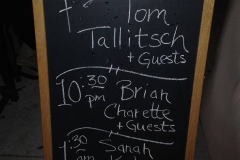 Tom
Tallitsch
+ Guests
10:30 pm Brian
Charette
+ Guests
:30 Sarah